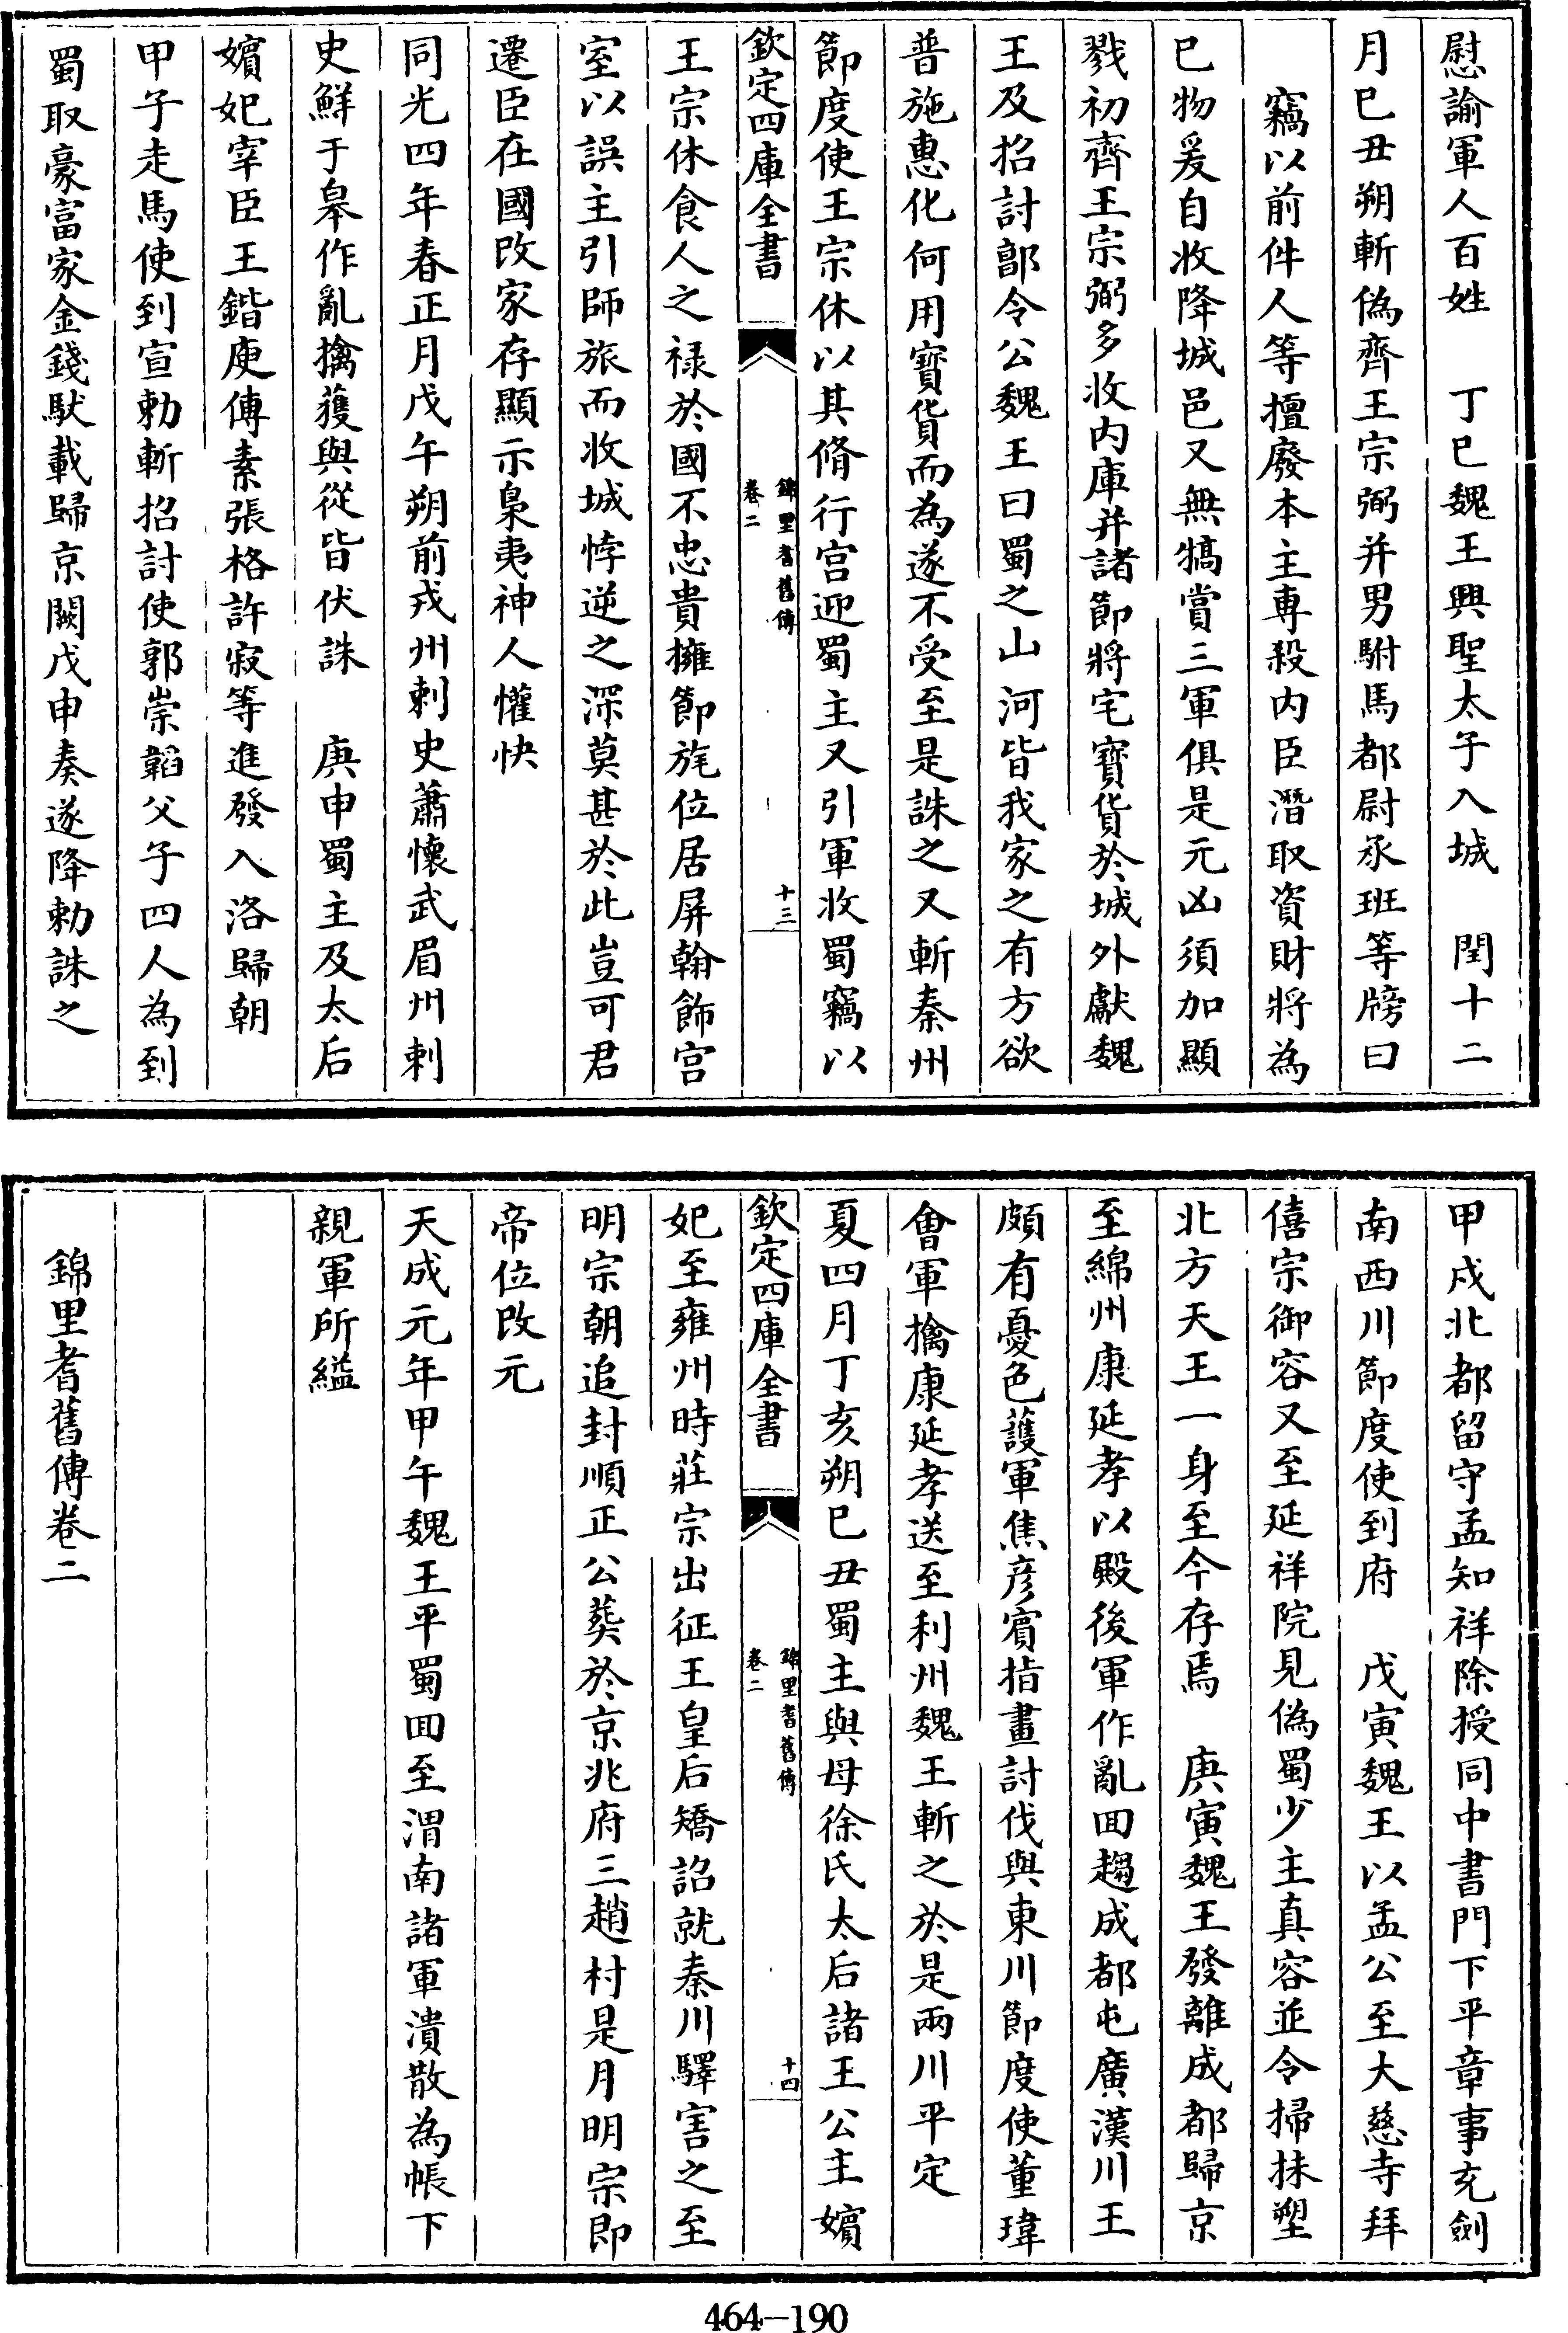 慰諭軍人百姓　丁巳魏王興聖太子入城　閏十二
月巳丑朔斬偽齊王宗弼并男駙馬都尉承班等牓曰
竊以前件人等擅廢本主專殺内臣潛取資財將為
巳物爰自收降城邑又無犒賞三軍俱是元凶須加顯
戮初齊王宗弼多收内庫并諸節將宅寶貨於城外獻魏
王及招討郭令公魏王曰蜀之山河皆我家之有方欲
普施惠化何用寶貨而為遂不受至是誅之又斬秦州
節度使王宗休以其脩行宫迎蜀主又引軍收蜀竊以
欽定四庫全書
錦里耆舊傳
卷二
十三
王宗休食人之禄於國不忠貴擁節旄位居屏翰飾宫
室以誤主引師旅而收城悖逆之深莫甚於此豈可君
遷臣在國改家存顯示梟夷神人懽快
同光四年春正月戊午朔前戎州刺史蕭懷武眉州刺
史鮮于臯作亂擒獲與從皆伏誅　庚申蜀主及太后
嬪妃宰臣王鍇庾傳素張格許寂等進發入洛歸朝
甲子走馬使到宣勅斬招討使郭崇韜父子四人為到
蜀取豪富家金錢馱載歸京闕戊申奏遂降勅誅之
甲戍北都留守孟知祥除授同中書門下平章事充劍
南西川節度使到府　戊寅魏王以孟公至大慈寺拜
僖宗御容又至延祥院見偽蜀少主真容並令掃抹塑
北方天王一身至今存焉　庚寅魏王發離成都歸京
至綿州康延孝以殿後軍作亂回趨成都屯廣漢川王
頗有憂色護軍焦彦賓指畫討伐與東川節度使董璋
會軍擒康延孝送至利州魏王斬之於是兩川平定
夏四月丁亥朔巳丑蜀主與母徐氏太后諸王公主嬪
欽定四庫全書
錦里耆舊傳
卷二
十四
妃至雍州時莊宗出征王皇后矯詔就秦川驛害之至
明宗朝追封順正公葬於京兆府三趙村是月明宗即
帝位改元
天成元年甲午魏王平蜀回至渭南諸軍潰散為帳下
親軍所縊
錦里耆舊傳卷二
464-190